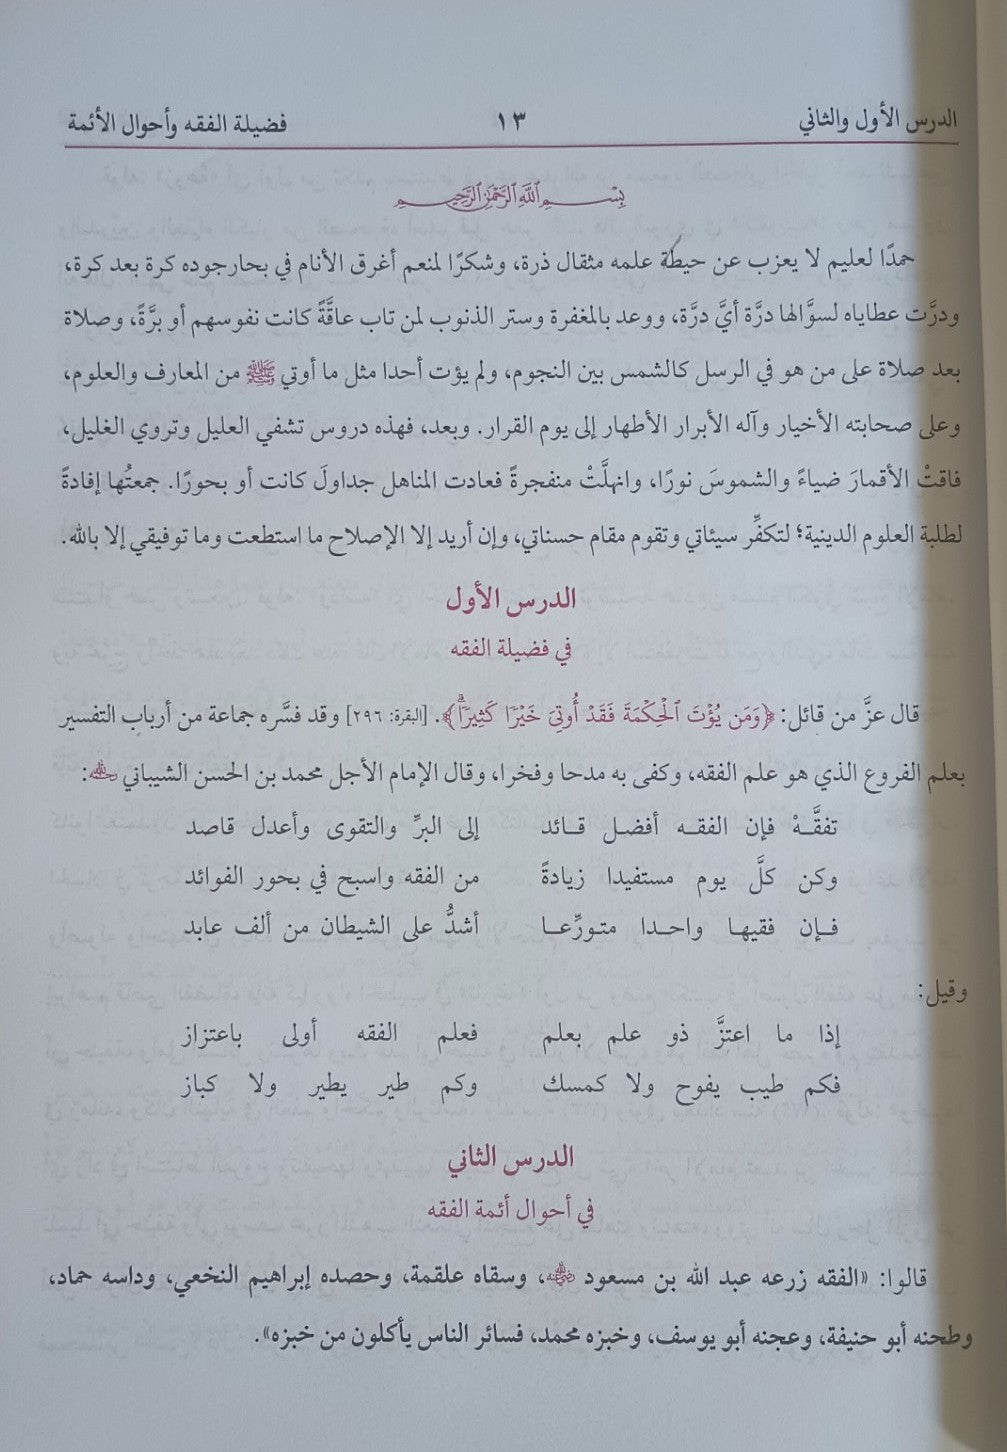 الدرس الأول والثاني ١٣ فضيلة الفقه وأحوال الأئمة
بِسْمِ اللَّهِ الرَّحْمَٰنِ الرَّحِيمِ
حمدًا لعليم لا يعزب عن حيطة علمه مثقال ذرة، وشكرًا لمنعم أغرق الأنام في بحارجوده كرة بعد كرة،
ودرَّت عطاياه لسؤَّالها درَّة أيَّ درَّة، ووعد بالمغفرة وستر الذنوب لمن تاب عاقَّةً كانت نفوسهم أو برَّةً، وصلاة
بعد صلاة على من هو في الرسل كالشمس بين النجوم، ولم يؤت أحدا مثل ما أوتي ﷺ من المعارف والعلوم،
وعلى صحابته الأخيار وآله الأبرار الأطهار إلى يوم القرار. وبعد، فهذه دروس تشفي العليل وتروي الغليل،
فاقتْ الأقمارَ ضياءً والشموسَ نورًا، وانهلَّتْ منفجرةً فعادت المناهل جداولَ كانت أو بحورًا. جمعتُها إفادةً
لطلبة العلوم الدينية؛ لتكفِّر سيئاتي وتقوم مقام حسناتي، وإن أريد إلا الإصلاح ما استطعت وما توفيقي إلا بالله.
الدرس الأول
في فضيلة الفقه
قال عزَّ من قائل: ﴿وَمَن يُؤْتَ ٱلْحِكْمَةَ فَقَدْ أُوتِيَ خَيْرًا كَثِيرًاۗ﴾. [البقرة: ٢٩٦] وقد فسَّره جماعة من أرباب التفسير
بعلم الفروع الذي هو علم الفقه، وكفى به مدحا وفخرا، وقال الإمام الأجل محمد بن الحسن الشيباني رحمه الله:
تفقَّـهْ فإن الفقـه أفضـل قـائد إلى البرِّ والتقوى وأعدل قاصد
وكن كلَّ يوم مستفيدا زيادةً من الفقه واسبح في بحور الفوائد
فـإن فقيهـا واحـدا متـورِّعـا أشدُّ على الشيطان من ألف عابد
وقيل:
إذا ما اعتزَّ ذو علم بعلم فعلم الفقه أولى باعتزاز
فكم طيب يفوح ولا كمسك وكم طير يطير ولا كباز
الدرس الثاني
في أحوال أئمة الفقه
قالوا: «الفقه زرعه عبد الله بن مسعود رضي الله عنه، وسقاه علقمة، وحصده إبراهيم النخعي، وداسه حماد،
وطحنه أبو حنيفة، وعجنه أبو يوسف، وخبزه محمد، فسائر الناس يأكلون من خبزه».